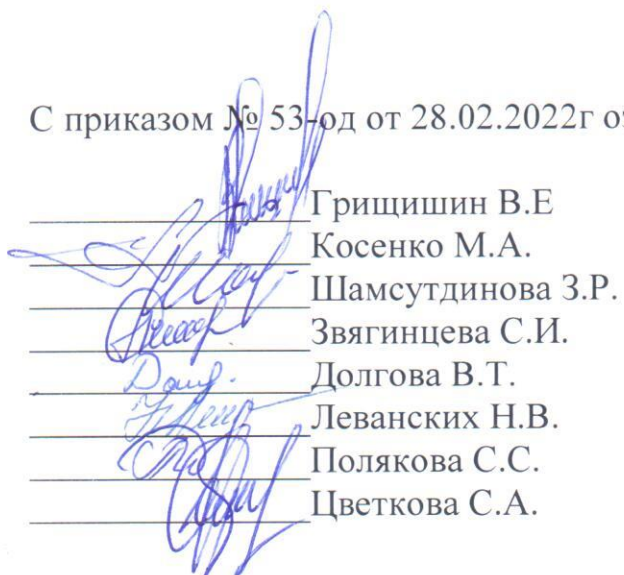 С приказом № 53-од от 28.02.2022г оз
Грищишин В.Е
Косенко М.А.
Шамсутдинова З.Р.
Звягинцева С.И.
Долгова В.Т.
Леванских Н.В.
Полякова С.С.
Цветкова С.А.